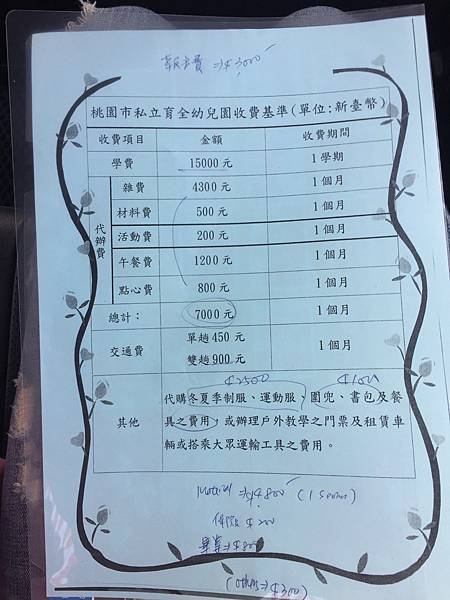 ⇒$3000
桃園市私立育全幼兒園收費基準(單位:新臺幣)
收費項目 金額 收費期間
學費 15000元 1學期
代辦費
雜費 4300元 1個月
材料費 500元 1個月
活動費 200元 1個月
午餐費 1200元 1個月
點心費 800元 1個月
總計: 7000元 1個月
交通費 單趟450元 1個月
雙趟900元
$2500
其他 代購冬夏季制服、運動服、圍兜、書包及餐
具之費用，或辦理戶外教學之門票及租賃車
輛或搭乘大眾運輸工具之費用。
⇒$4800
$200
⇒$800
(others⇒$300)